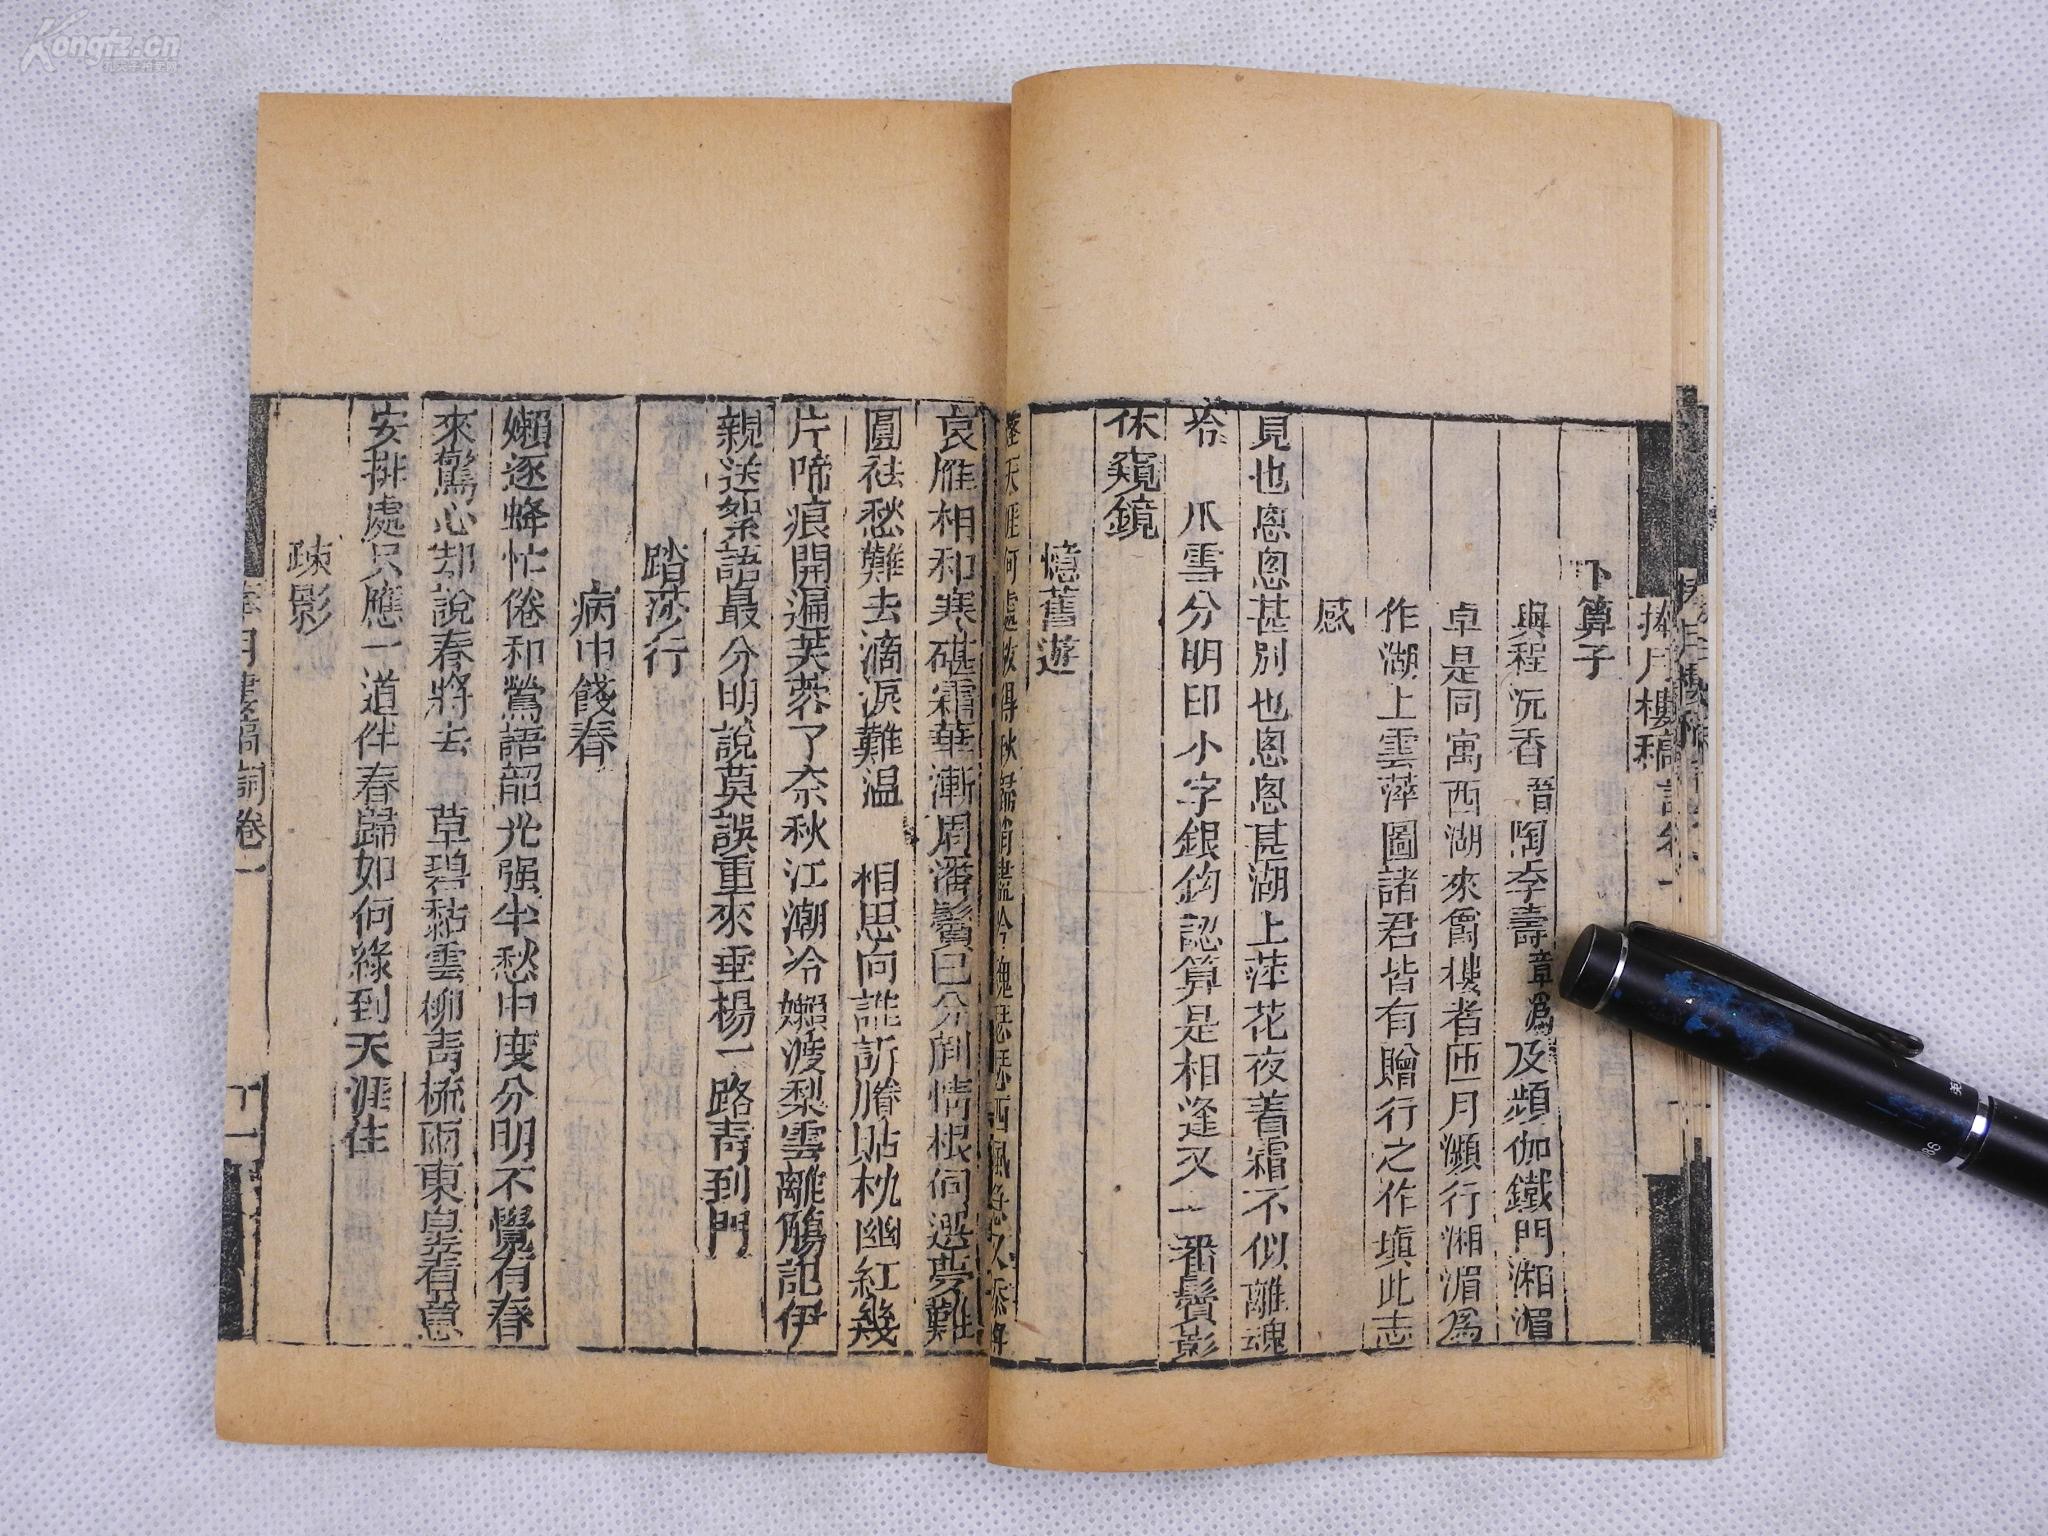 捧月樓稿
卜算子
與程沅香晉陶李壽章溈及頻伽鐵門湘湄
卓是同寓西湖來會樓者匝月瀕行湘湄爲
作湖上雲萍圖諸君皆有贈行之作塡此志
感
見也悤悤甚別也悤悤甚湖上萍花夜着霜不似離魂
冷　爪雪分明印小字銀鈎認算是相逢又一番鬢影
休窺鏡
憶舊遊
天涯何處
哀雁相和寒碪霜華漸周潘鬢已分剷情根伺選夢難
圓祛愁難去滴淚難温　相思向誰訴賸貼枕幽紅幾
片啼痕開遍芙蓉了奈秋江潮冷嬾渡梨雲離觴記伊
親送絮語最分明說莫誤重來垂楊一路靑到門
踏莎行
病中餞春
嬾逐蜂忙倦和鶯語韶光强半愁中度分明不覺有春
來驚心却說春將去　草碧黏雲柳靑梳雨東皇着意
安排處只應一道伴春歸如何綠到天涯住
疎影
捧月樓稿詞卷一
十一
Kongfz.cn